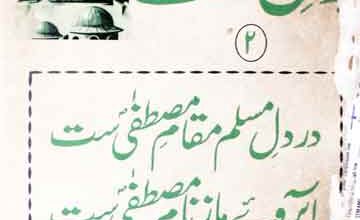 ۲
در دلِ مسلم مقامِ مصطفیٰؐ ست
آبروئے ما ز نامِ مصطفیٰؐ ست